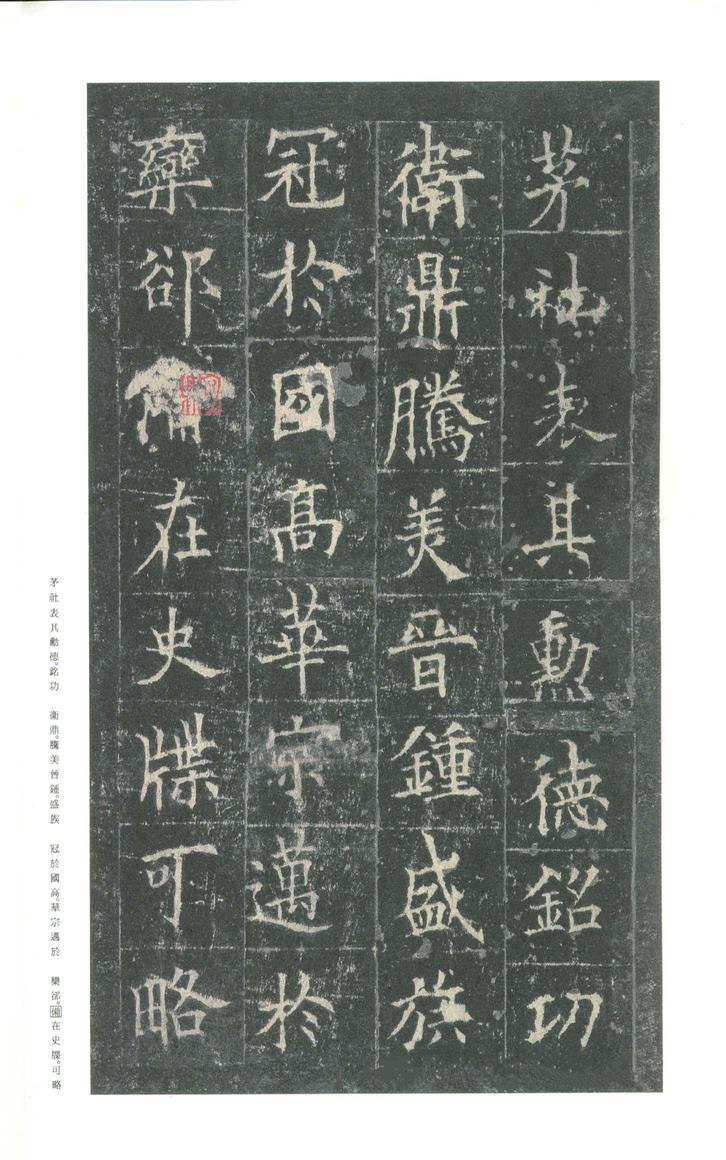 茅社表其勳德銘功
衛鼎騰美晉鍾盛族
冠於國高華宗邁於
欒郤備在史牒可略
茅社表其勳德。銘功 衛鼎。騰美晉鍾。盛族 冠於國高。華宗邁於 欒郤。備在史牒。可略